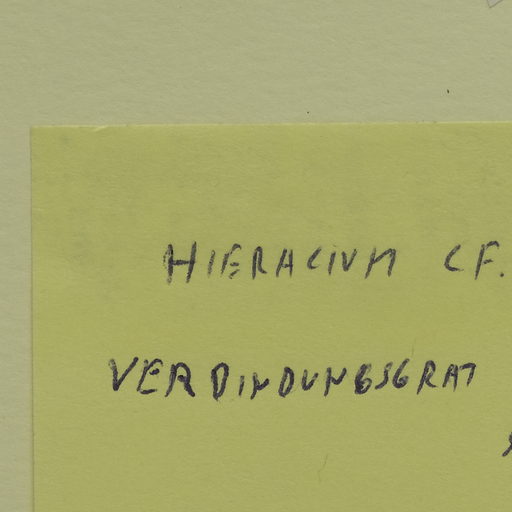 HIERACIUM CF.
VERBINDUNGSGRAT